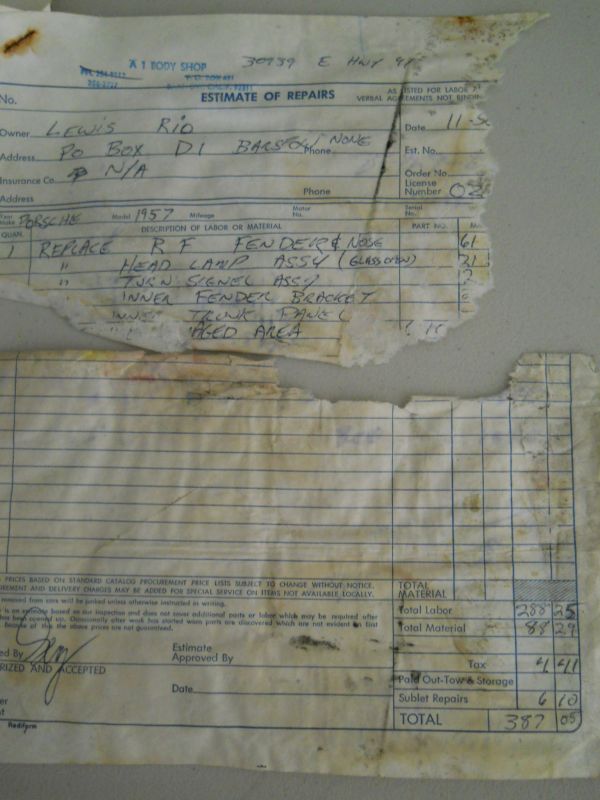 A 1 BODY SHOP 30939 E HWY
ESTIMATE OF REPAIRS
AS LISTED FOR LABOR
VERBAL AGREEMENTS NOT BINDIN
No.
Owner LEWIS RIO
Date 11-
Address PO BOX D1 BARSTOW Phone NONE
Est. No.
Insurance Co. N/A
Order No.
Address Phone
License Number
Year Make PORSCHE Model 1957 Mileage Motor No. Serial No.
QUAN. DESCRIPTION OF LABOR OR MATERIAL PART NO.
1 REPLACE R F FENDER & NOSE 61
" HEAD LAMP ASSY (GLASS ONLY) 21
" TURN SIGNEL ASSY
" INNER FENDER BRACKET
INNER TRUNK PANEL
AGED AREA
PRICES BASED ON STANDARD CATALOG PROCUREMENT PRICE LISTS SUBJECT TO CHANGE WITHOUT NOTICE.
REMENT AND DELIVERY CHARGES MAY BE ADDED FOR SPECIAL SERVICE ON ITEMS NOT AVAILABLE LOCALLY.
removed from cars will be junked unless otherwise instructed in writing.
is an estimate based on our inspection and does not cover additional parts or labor which may be required after
has been opened up. Occasionally after work has started worn parts are discovered which are not evident on first
Because of this the above prices are not guaranteed.
TOTAL MATERIAL
Total Labor 288 25
Total Material 88 29
ed By
Estimate Approved By
RIZED AND ACCEPTED
Tax 4 41
Paid Out-Tow & Storage
Date
Sublet Repairs 6 10
TOTAL 387 05
Rediform